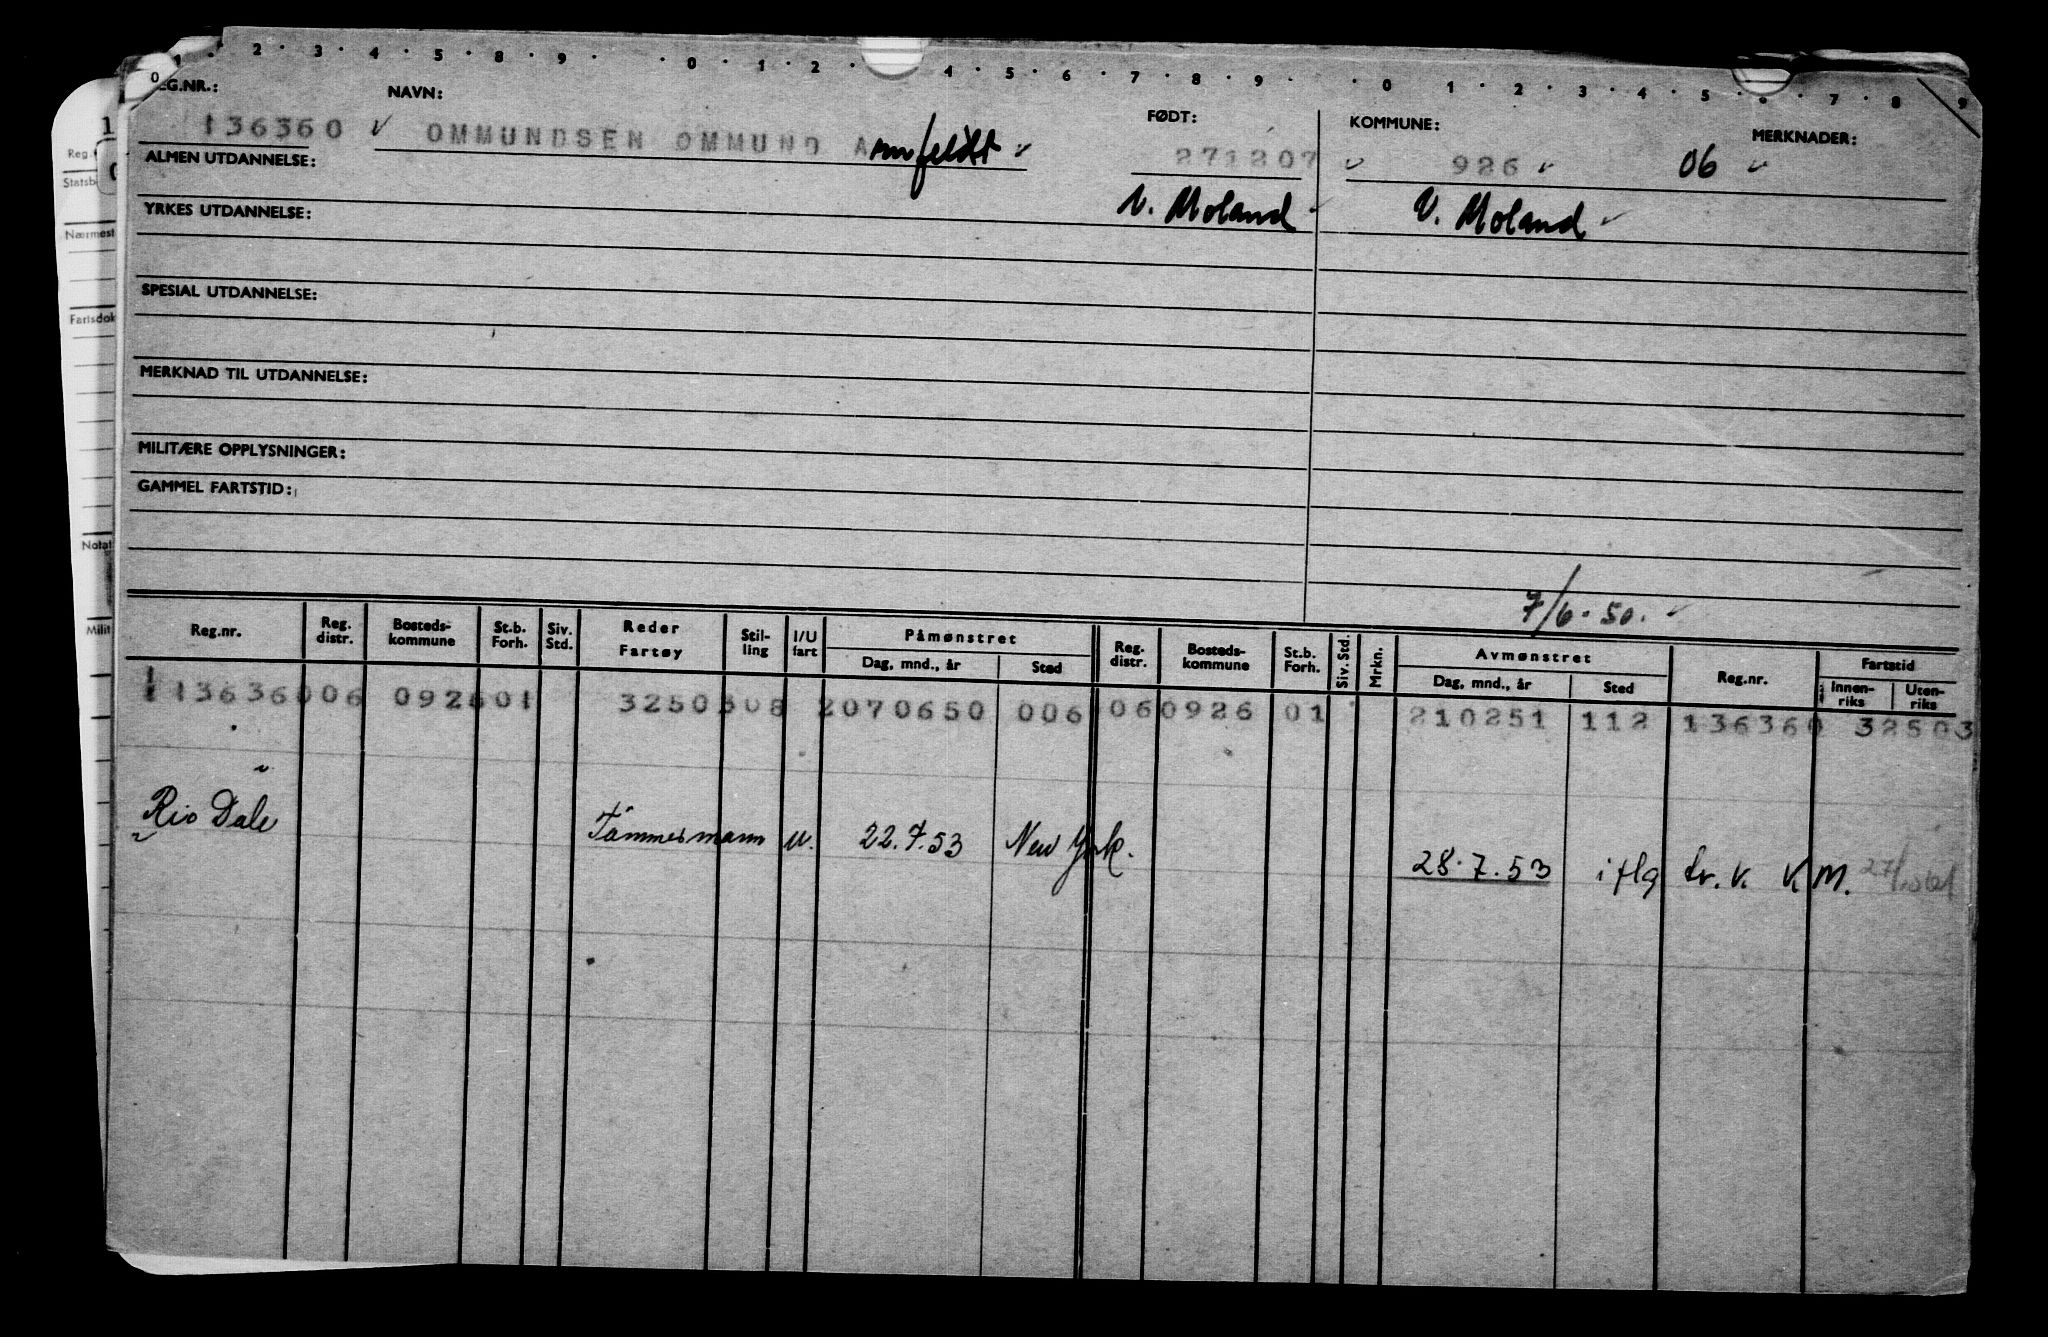 0 1 2 3 4 5 8 9 0 1 2 4 5 6 7 8 9 0 1 2 3 4 5 6 7 8 9
EG.NR.: NAVN: FØDT: KOMMUNE: MERKNADER:
136360 OMMUNDSEN OMMUND Amfeldt 271207 926 06
ALMEN UTDANNELSE:
V. Moland V. Moland
YRKES UTDANNELSE:
SPESIAL UTDANNELSE:
MERKNAD TIL UTDANNELSE:
MILITÆRE OPPLYSNINGER:
GAMMEL FARTSTID:
7/6-50.
Reg.nr. Reg. distr. Bosteds-kommune St.b. Forh. Siv. Std. Reder Fartøy Stil-ling I/U fart Påmønstret Dag, mnd., år Sted Reg. distr. Bosteds-kommune St.b. Forh. Siv. Std. Mrkn. Avmønstret Dag, mnd., år Sted Reg.nr. Fartstid Innen-riks Uten-riks
113636006 092601 3250308 2070650 006 06 0926 01 210251 112 136360 32503
Rio Dale Tømmermann u. 22.7.53 New York. 28.7.53 iflg V. M.
1
Reg.
Statsb
Nærmest
Fartsdok
Notat
Milit